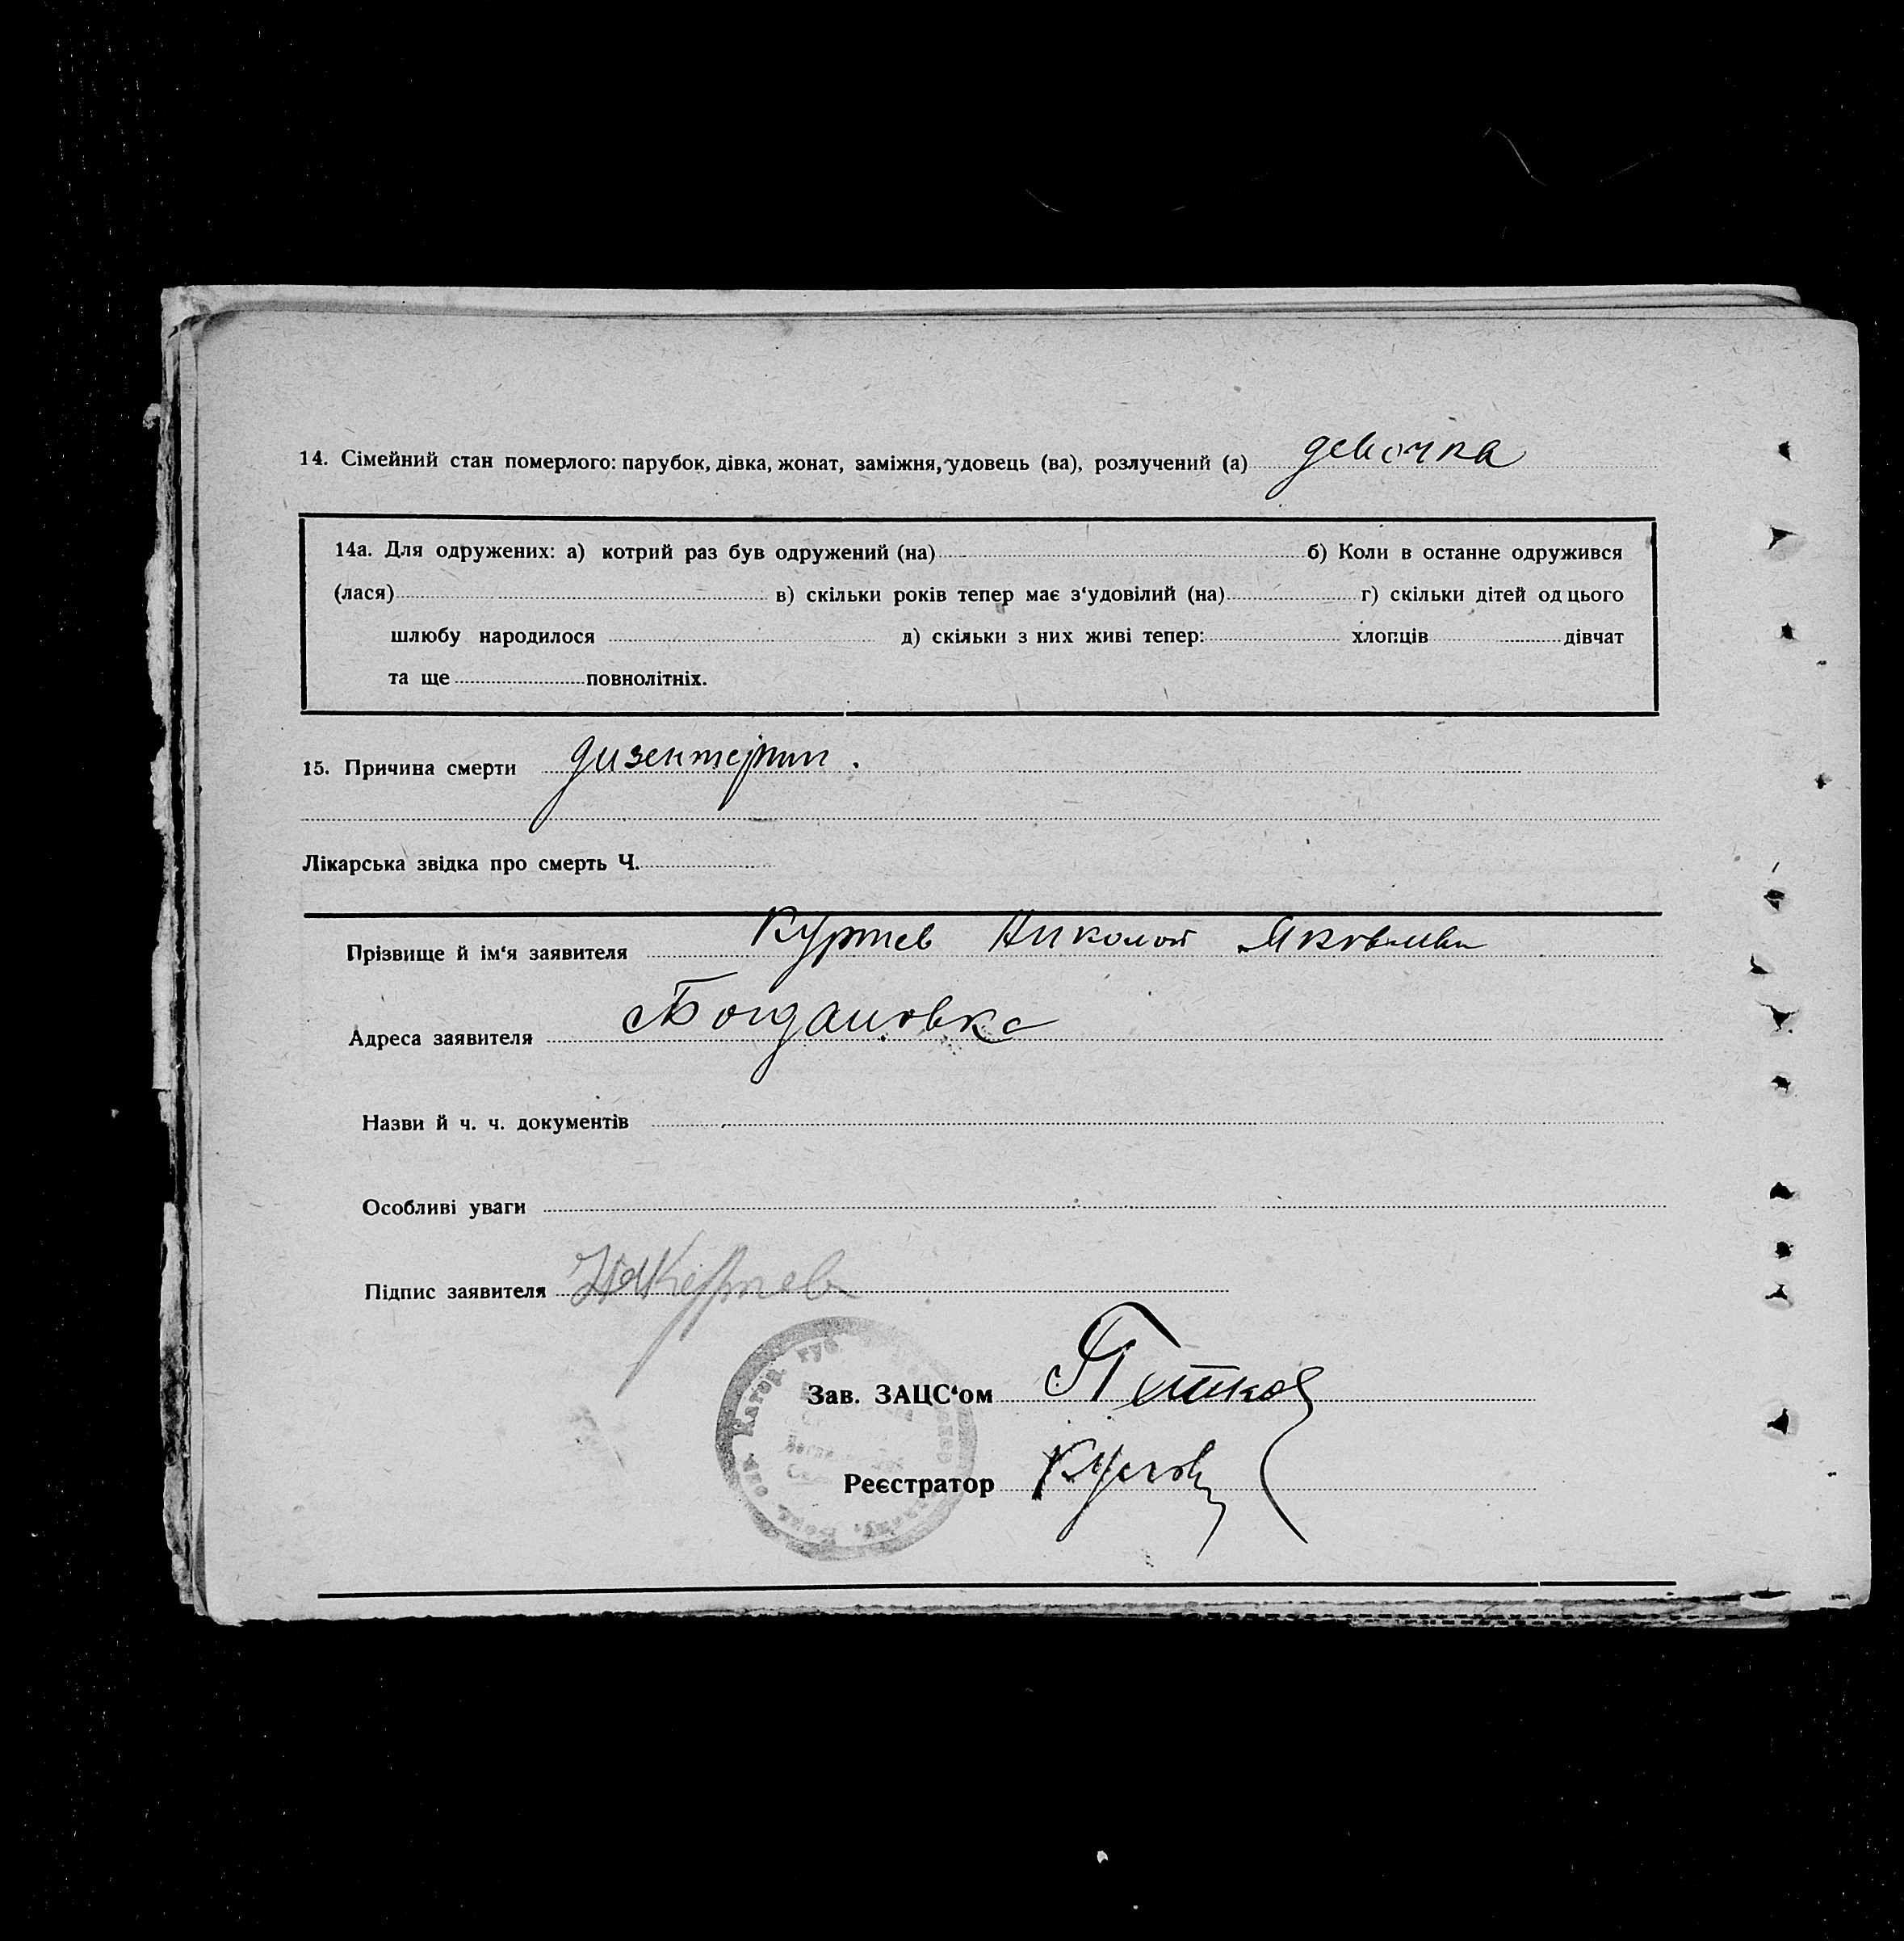 14. Сімейний стан померлого: парубок, дівка, жонат, заміжня, удовець (ва), розлучений (а) девочка
14а. Для одружених: а) котрий раз був одружений (на) б) Коли в останне одружився
(лася) в) скільки років тепер має з‘удовілий (на) г) скільки дітей од цього
шлюбу народилося д) скільки з них живі тепер: хлопців дівчат
та ще повнолітніх.
15. Причина смерти дизентерия.
Лікарська звідка про смерть Ч.
Прізвище й ім‘я заявителя Куртев Николай Яковлевич
Адреса заявителя Богдановка
Назви й ч. ч. документів
Особливі уваги
Підпис заявителя Куртев
Зав. ЗАЦС‘ом
Реєстратор